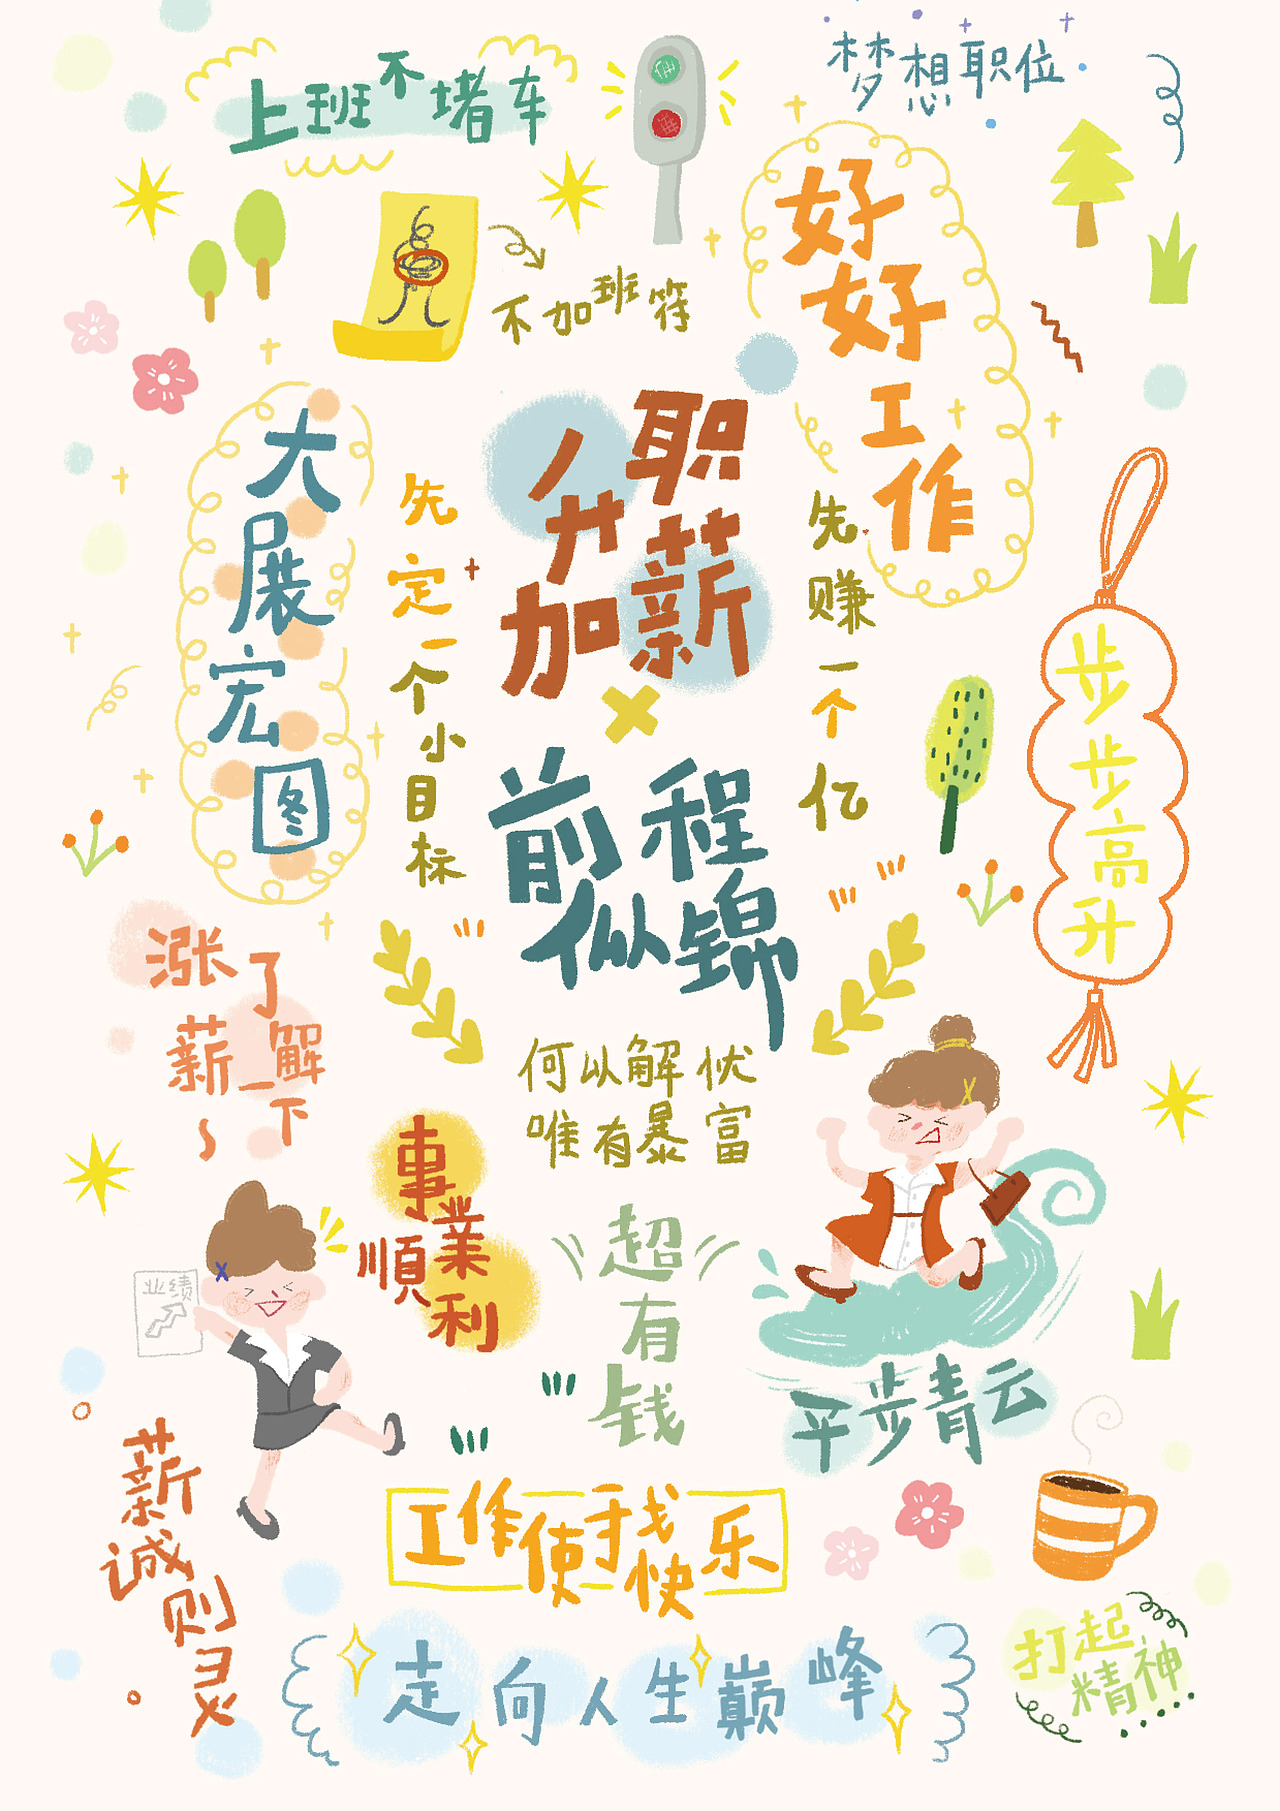 上班不堵车
梦想职位
好好工作
不加班符
大展宏图
先定一个小目标
升职加薪
先赚一个亿
步步高升
前程似锦
涨薪了解一下~
何以解忧
唯有暴富
事業順利
超有钱
业绩
平步青云
薪诚则灵
工作使我快乐
走向人生巅峰
打起精神